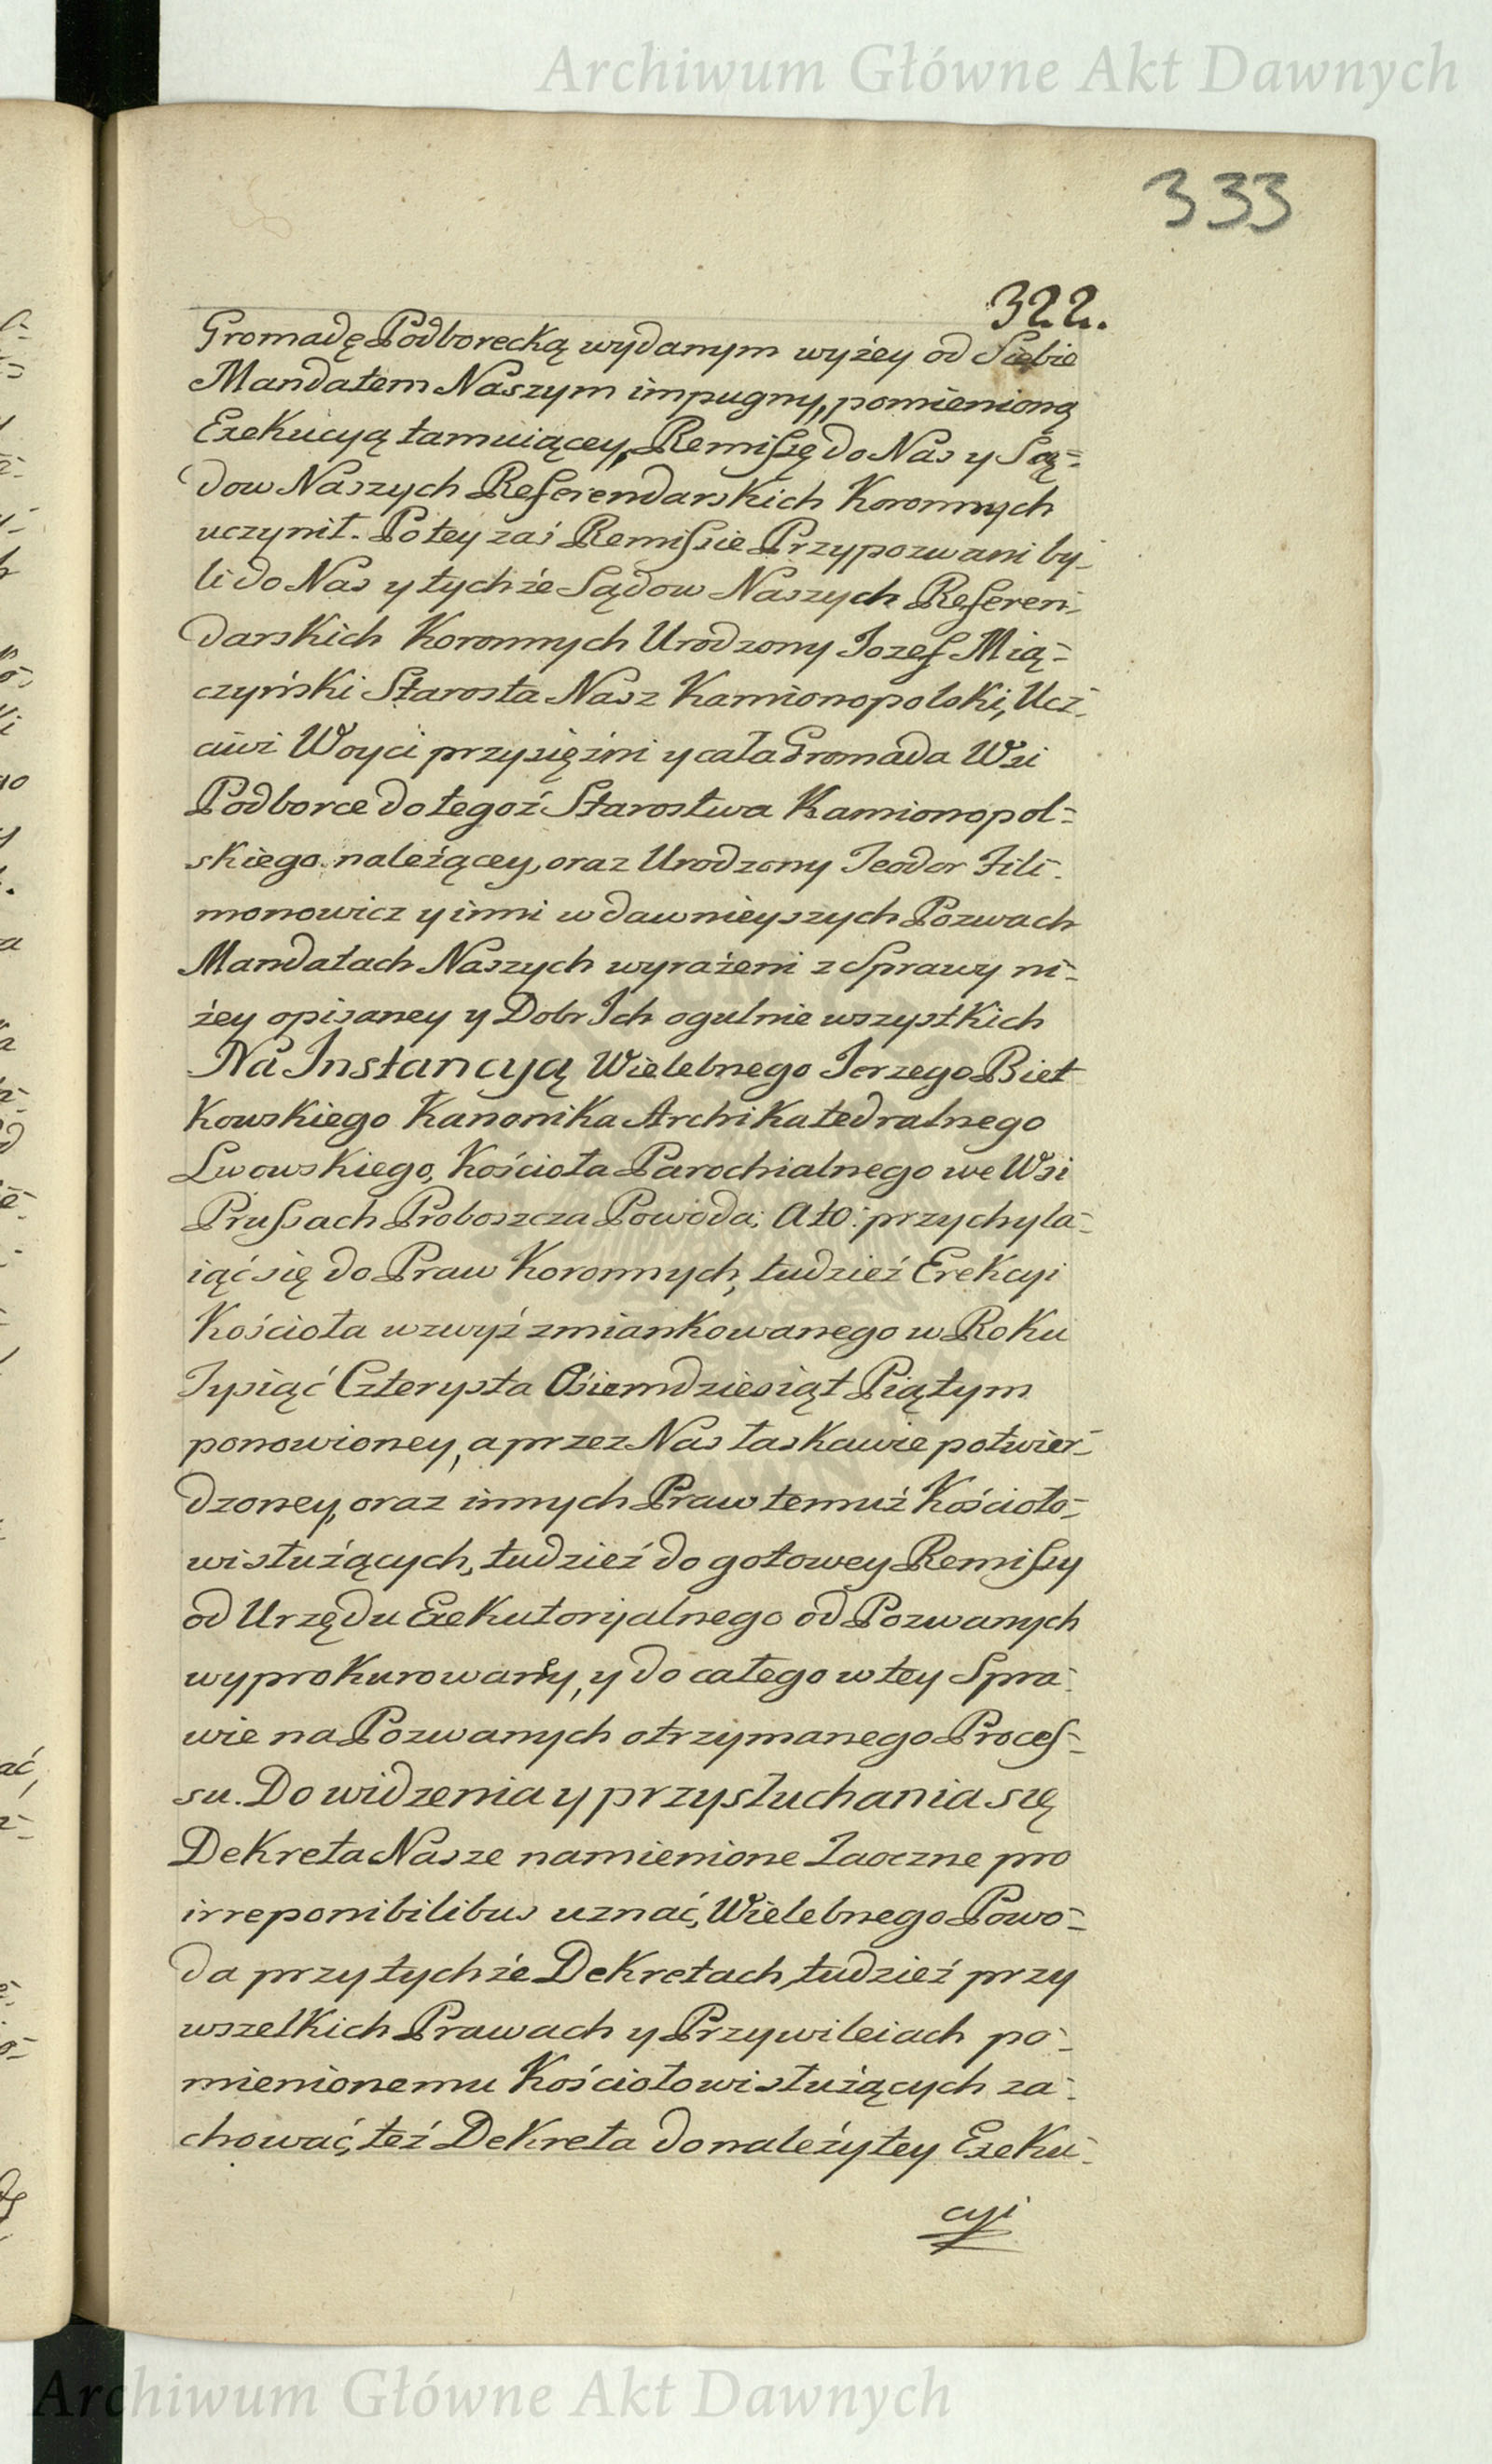 Archiwum Główne Akt Dawnych
333
322.
Gromadę Podborecką wydanym wyżey od Siebie
Mandatem Naszym impugny, pomienioną
Exekucyą tamuiącey, Remissę do Nas y Są-
dow Naszych Referendarskich Koronnych
uczynił. Po tey zaś Remissie Przypozwani by-
li do Nas y tychże Sądow Naszych Referen-
darskich Koronnych Urodzony Jozef Mią-
czyński Starosta Nasz Kamionopolski, Ucz-
ciwi Woyci przysiężni y cała Gromada Wsi
Podborce do tegoż Starostwa Kamionopol-
skiego należącey, oraz Urodzony Teodor Fili-
monowicz y inni w dawnieyszych Pozwach
Mandatach Naszych wyrażeni z Sprawy ni-
żey opisaney y Dobr Ich ogulnie wszystkich
Na Instancyą Wielebnego Jerzego Biet
kowskiego Kanonika Archikatedralnego
Lwowskiego, Kościoła Parochialnego we Wsi
Prussach Proboszcza Powoda; A to: przychyla-
iąć się do Praw Koronnych, tudzież Erekcyi
Kościoła wzwyż zmiankowanego w Roku
Tysiąć Czterysta Ośiemdziesiąt Piątym
ponowioney, a przez Nas łaskawie potwier-
dzoney, oraz innych Praw temuż Kościoło-
wi służących, tudzież do gotowey Remissy
od Urzędu Exekutoryalnego od Pozwanych
wyprokurowaney, y do całego w tey Spra-
wie na Pozwanych otrzymanego Proces-
su. Do widzenia y przysłuchania się
Dekreta Nasze namienione Zaoczne pro
irreponibilibus uznać, Wielebnego Powo-
da przy tychże Dekretach, tudzież przy
wszelkich Prawach y Przywileiach po-
mienionemu Kościołowi służących za-
chować, też Dekreta do należytey Exeku-
cyi
Archiwum Główne Akt Dawnych